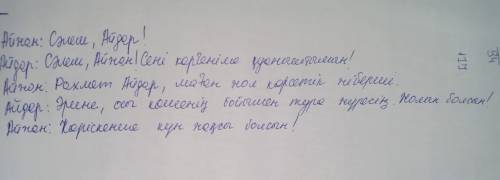 Айжан: Сәлем, Айдар!
Айдар: Сәлем, Айжан! Сені көргеніме қуаныштымын!
Айжан: Рахмет Айдар, маған жол көрсетіп жіберші.
Айдар: Әрине, осы көшенің бойымен тура жүресің. Жолың болсын!
Айжан: Көріскенше күн жақсы болсын!